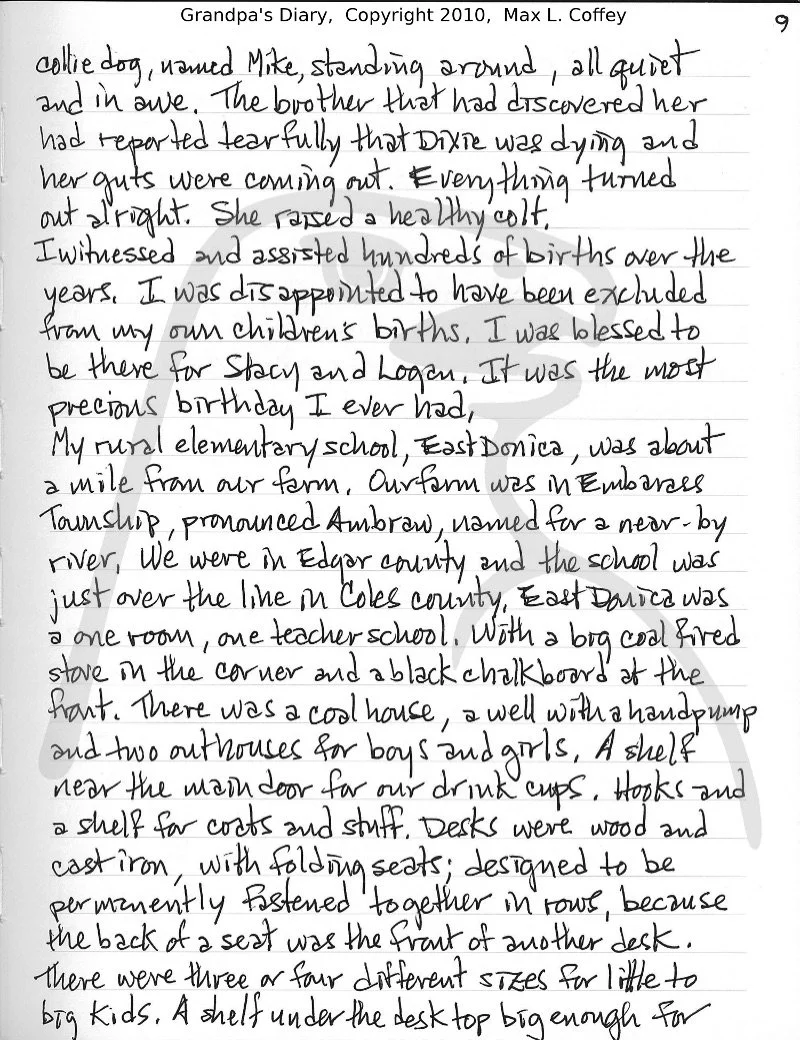 Grandpa's Diary, Copyright 2010, Max L. Coffey
9
collie dog, named Mike, standing around, all quiet
and in awe. The brother that had discovered her
had reported tearfully that Dixie was dying and
her guts were coming out. Everything turned
out alright. She raised a healthy colt.
I witnessed and assisted hundreds of births over the
years. I was disappointed to have been excluded
from my own children's births. I was blessed to
be there for Stacy and Logan. It was the most
precious birthday I ever had.
My rural elementary school, East Donica, was about
a mile from our farm. Our farm was in Embarass
Township, pronounced Ambraw, named for a near-by
river. We were in Edgar county and the school was
just over the line in Coles county. East Donica was
a one room, one teacher school. With a big coal fired
stove in the corner and a black chalkboard at the
front. There was a coal house, a well with a hand pump
and two outhouses for boys and girls. A shelf
near the main door for our drink cups. Hooks and
a shelf for coats and stuff. Desks were wood and
cast iron, with folding seats; designed to be
permanently fastened together in rows, because
the back of a seat was the front of another desk.
There were three or four different sizes for little to
big kids. A shelf under the desk top big enough for